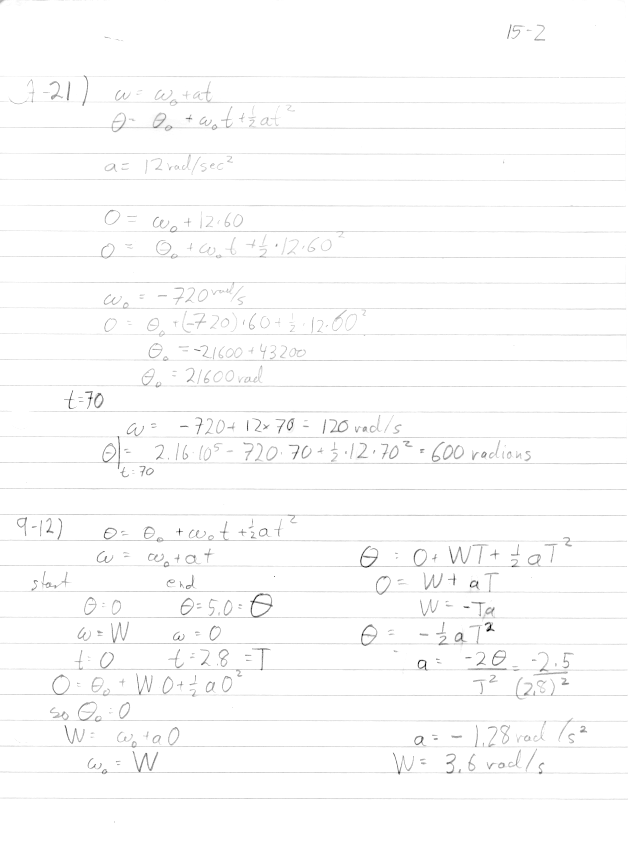 15-2
7-21) ω = ω₀ + at
θ = θ₀ + ω₀t + ½at²
a = 12 rad/sec²
0 = ω₀ + 12·60
0 = θ₀ + ω₀t + ½·12·60²
ω₀ = -720 rad/s
0 = θ₀ + (-720)·60 + ½·12·60²
θ₀ = -21600 + 43200
θ₀ = 21600 rad
t=70
ω = -720 + 12×70 = 120 rad/s
θ|t=70 = 2.16·10⁵ - 720·70 + ½·12·70² = 600 radians
9-12) θ = θ₀ + ω₀t + ½at²
ω = ω₀ + at
start end
θ=0 θ=5.0=Θ
ω=W ω=0
t=0 t=2.8=T
0 = θ₀ + W0 + ½a0²
so θ₀=0
W = ω₀ + a0
ω₀ = W
Θ = 0 + WT + ½aT²
0 = W + aT
W = -Ta
Θ = -½aT²
a = -2Θ/T² = -2.5/(2.8)²
a = -1.28 rad/s²
W = 3.6 rad/s